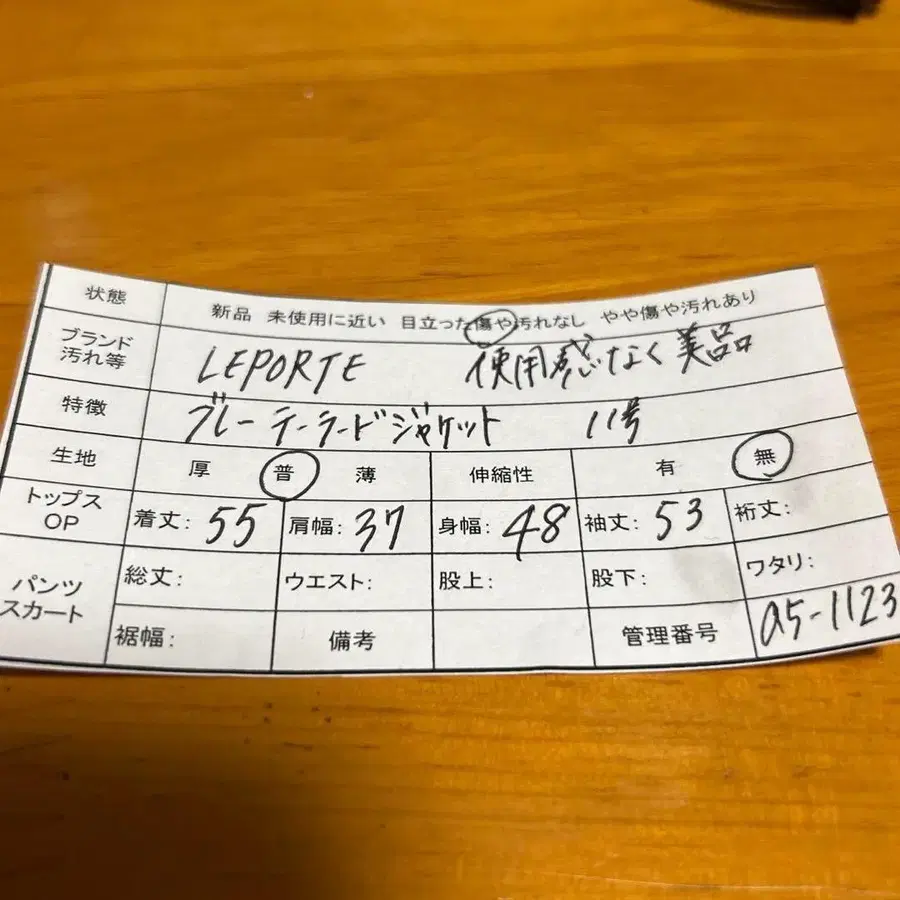 状態 新品 未使用に近い 目立った傷や汚れなし やや傷や汚れあり
ブランド 汚れ等 LEPORTE 使用感なく美品
特徴 ブレーテーラードジャケット 11号
生地 厚 普 薄 伸縮性 有 無
トップス OP 着丈: 55 肩幅: 37 身幅: 48 袖丈: 53 裄丈:
パンツ スカート 総丈: ウエスト: 股上: 股下: ワタリ:
裾幅: 備考 管理番号 a5-1123